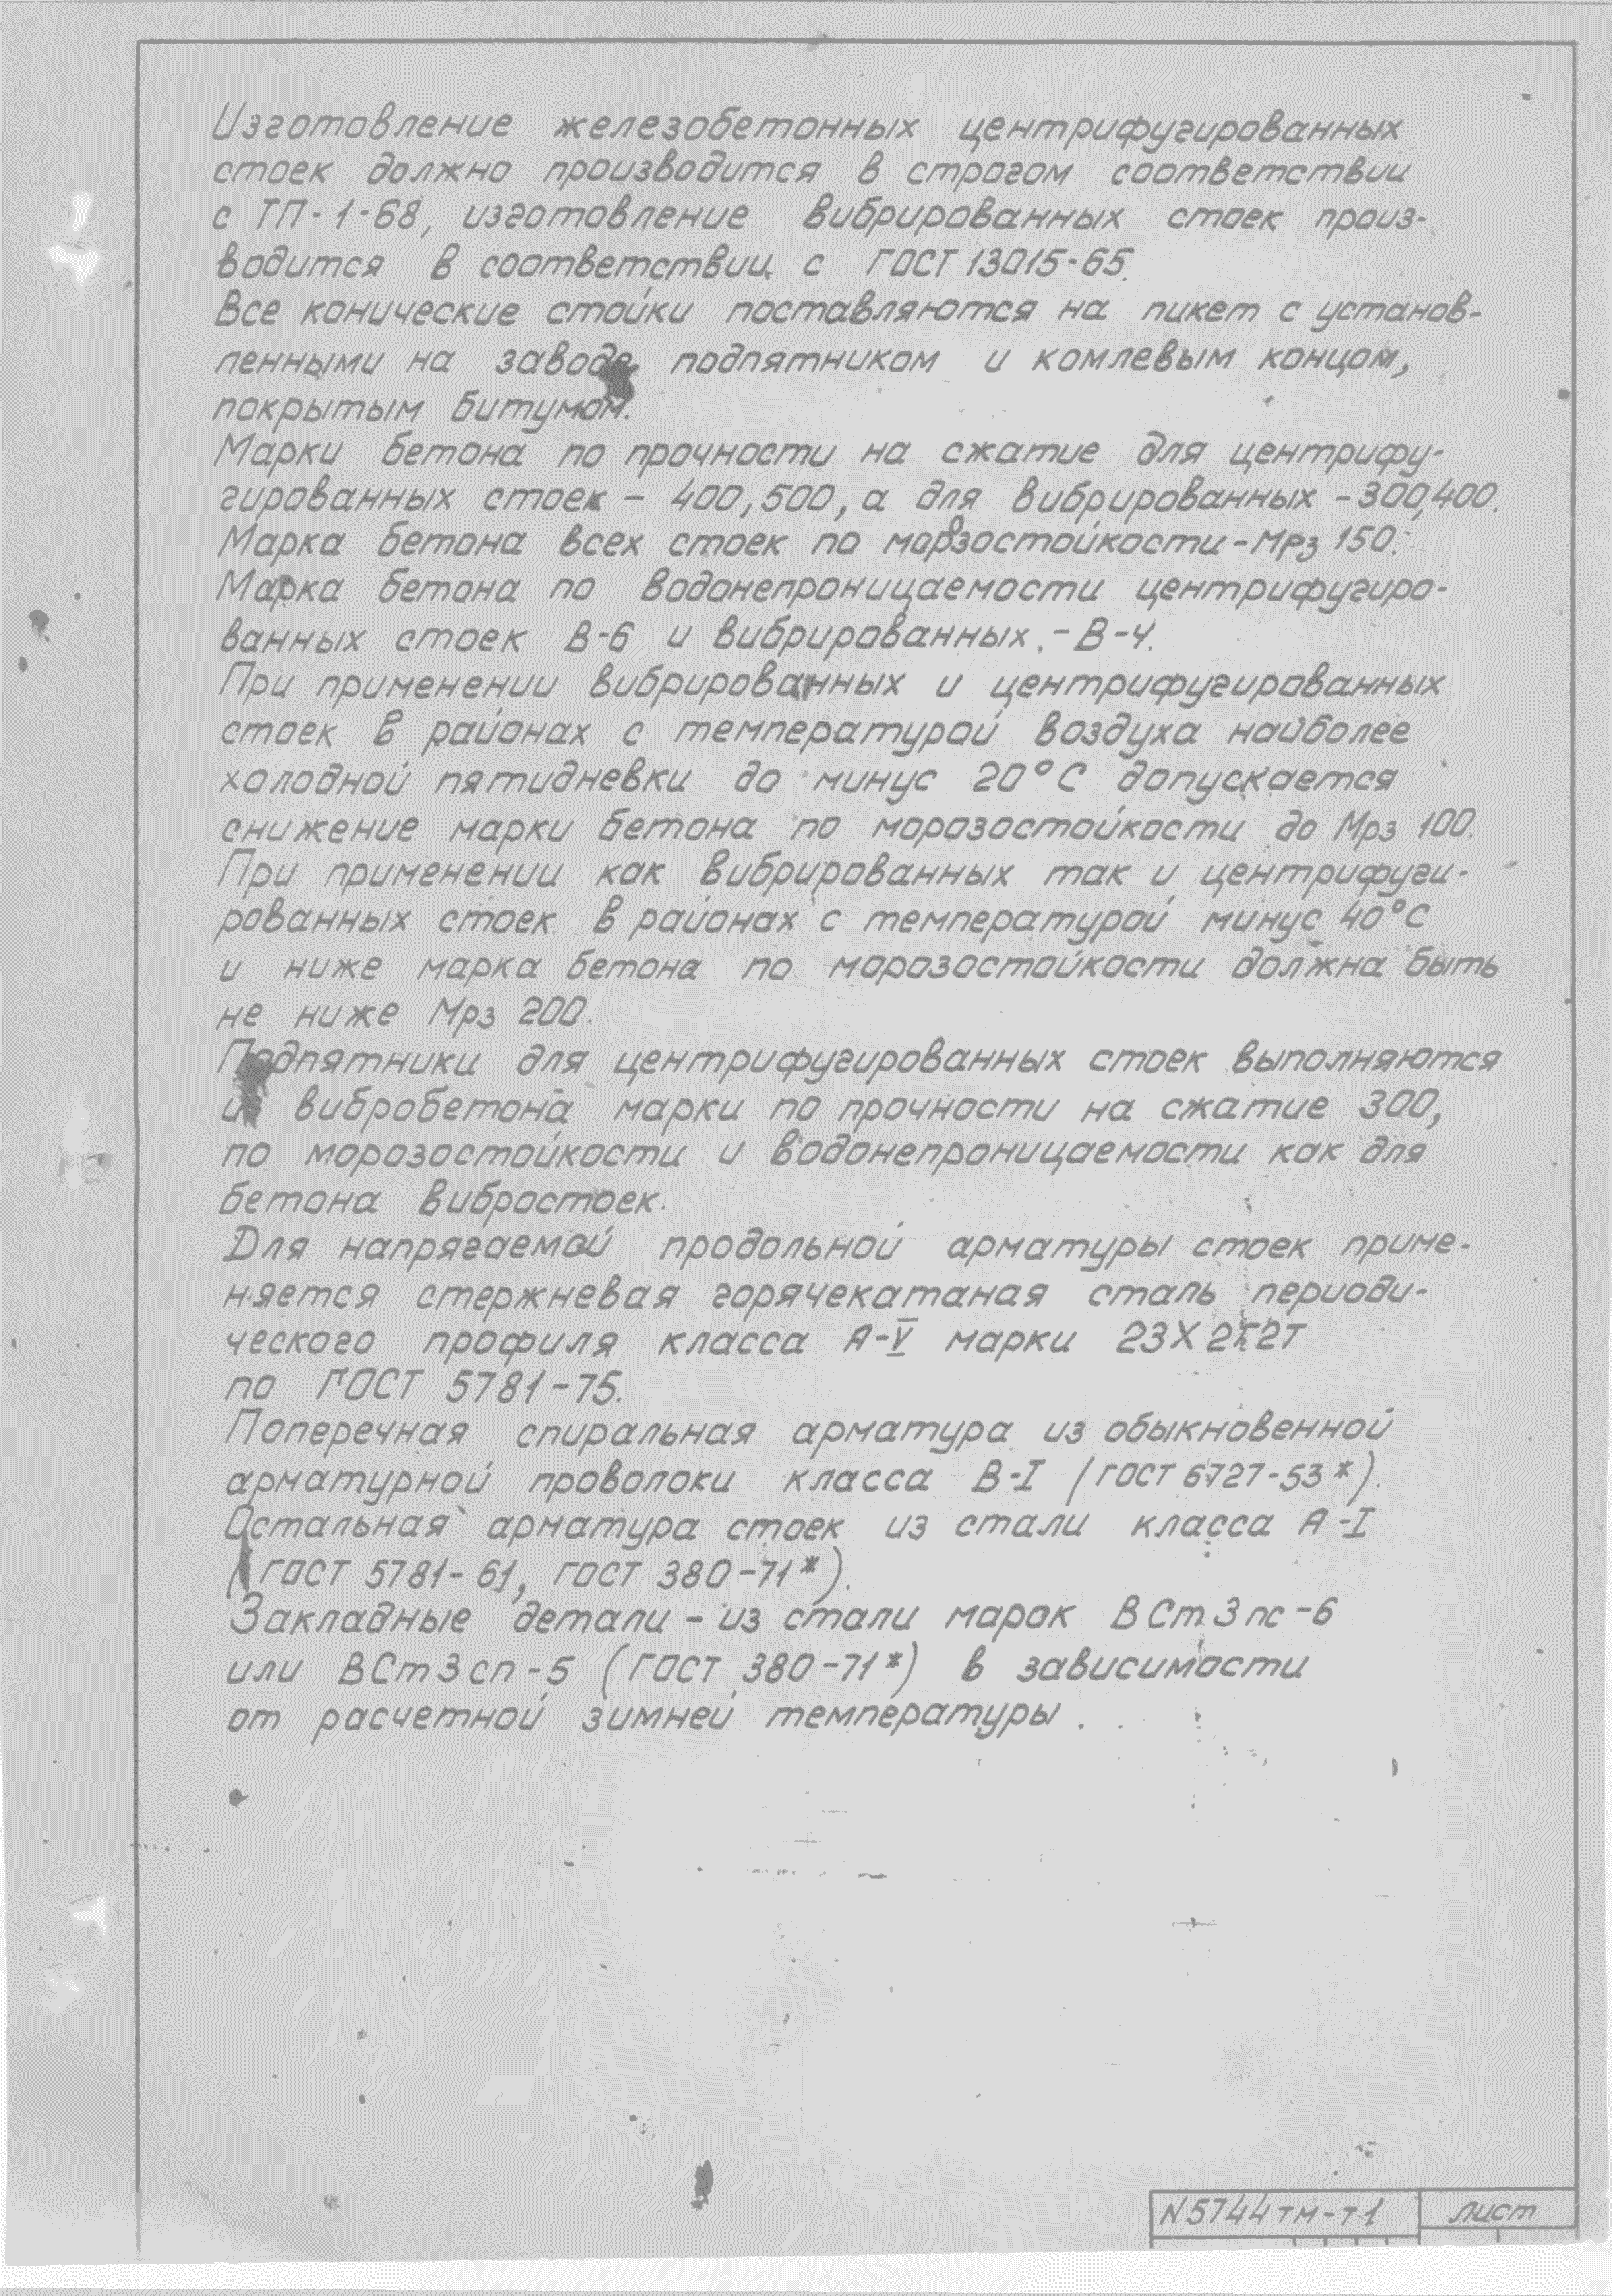 Изготовление железобетонных центрифугированных
стоек должно производится в строгом соответствии
с ТП-1-68, изготовление вибрированных стоек произ-
водится в соответствии с ГОСТ 13015-65.
Все конические стойки поставляются на пикет с установ-
ленными на заводе подпятником и комлевым концом,
покрытым битумом.
Марки бетона по прочности на сжатие для центрифу-
гированных стоек - 400, 500, а для вибрированных - 300, 400.
Марка бетона всех стоек по морозостойкости - Мрз 150.
Марка бетона по водонепроницаемости центрифугиро-
ванных стоек В-6 и вибрированных - В-4.
При применении вибрированных и центрифугированных
стоек в районах с температурой воздуха наиболее
холодной пятидневки до минус 20°С допускается
снижение марки бетона по морозостойкости до Мрз 100.
При применении как вибрированных так и центрифуги-
рованных стоек в районах с температурой минус 40°С
и ниже марка бетона по морозостойкости должна быть
не ниже Мрз 200.
Подпятники для центрифугированных стоек выполняются
из вибробетона марки по прочности на сжатие 300,
по морозостойкости и водонепроницаемости как для
бетона вибростоек.
Для напрягаемой продольной арматуры стоек приме-
няется стержневая горячекатаная сталь периоди-
ческого профиля класса А-V марки 23Х2Г2Т
по ГОСТ 5781-75.
Поперечная спиральная арматура из обыкновенной
арматурной проволоки класса В-I (ГОСТ 6727-53*).
Остальная арматура стоек из стали класса А-I
(ГОСТ 5781-61, ГОСТ 380-71*).
Закладные детали - из стали марок ВСт3пс-6
или ВСт3сп-5 (ГОСТ 380-71*) в зависимости
от расчетной зимней температуры.
N5744тм-т1 лист